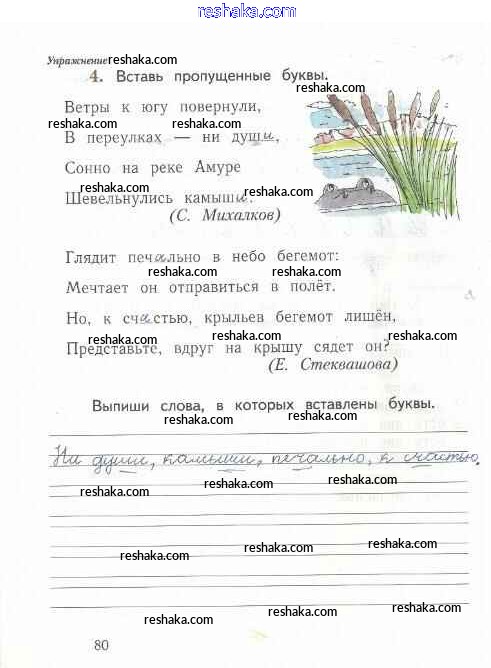 reshaka.com
Упражнение reshaka.com
4. Вставь пропущенные буквы.
reshaka.com
Ветры к югу повернули,
reshaka.com reshaka.com
В переулках — ни души,
reshaka.com
Сонно на реке Амуре
reshaka.com reshaka.com
Шевельнулись камыши.
(С. Михалков)
Глядит печально в небо бегемот:
reshaka.com reshaka.com
Мечтает он отправиться в полёт.
reshaka.com
Но, к счастью, крыльев бегемот лишён,
reshaka.com reshaka.com
Представьте, вдруг на крышу сядет он?
reshaka.com
(Е. Стеквашова)
Выпиши слова, в которых вставлены буквы.
reshaka.com reshaka.com
Ни души, камыши, печально, к счастью.
reshaka.com reshaka.com reshaka.com
reshaka.com
reshaka.com reshaka.com reshaka.com
reshaka.com reshaka.com reshaka.com
80